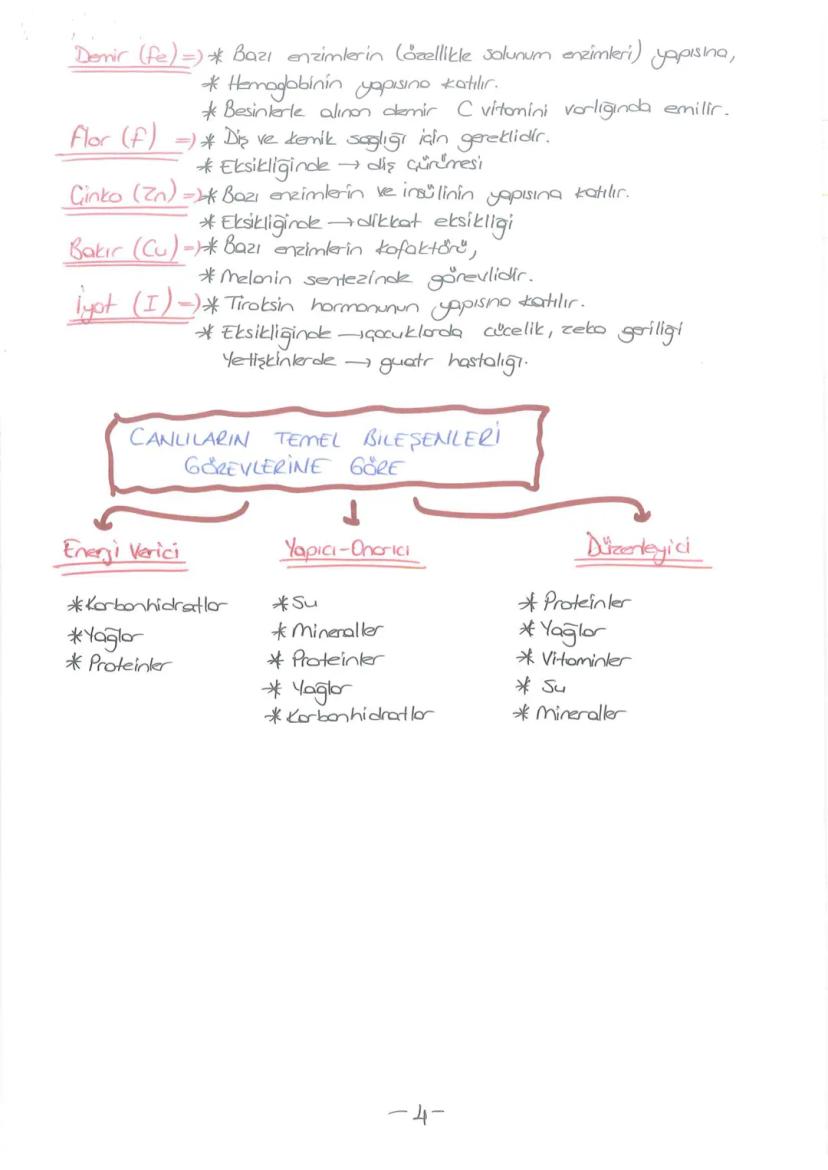 Demir (fe) => * Bazı enzimlerin (özellikle solunum enzimleri) yapısına,
* Hemoglobinin yapısına katılır.
* Besinlerle alınan demir C vitamini varlığında emilir.
Flor (f) => * Diş ve kemik sağlığı için gereklidir.
* Eksikliğinde → diş çürümesi
Çinko (Zn) => * Bazı enzimlerin ve insülinin yapısına katılır.
* Eksikliğinde → dikkat eksikliği
Bakır (Cu) => * Bazı enzimlerin kofaktörü,
* Melanin sentezinde görevlidir.
İyot (I) => * Tiroksin hormonunun yapısna katılır.
* Eksikliğinde → çocuklarda cücelik, zeka geriliği
Yetişkinlerde → guatr hastalığı.
CANLILARIN TEMEL BİLEŞENLERİ
GÖREVLERİNE GÖRE
Energi Verici
* Karbonhidratlar
* Yağlar
* Proteinler
Yapıcı-Onarıcı
* Su
* Mineraller
* Proteinler
* Yağlar
* Karbonhidratlar
Düzenleyici
* Proteinler
* Yağlar
* Vitaminler
* Su
* Mineraller
-4-